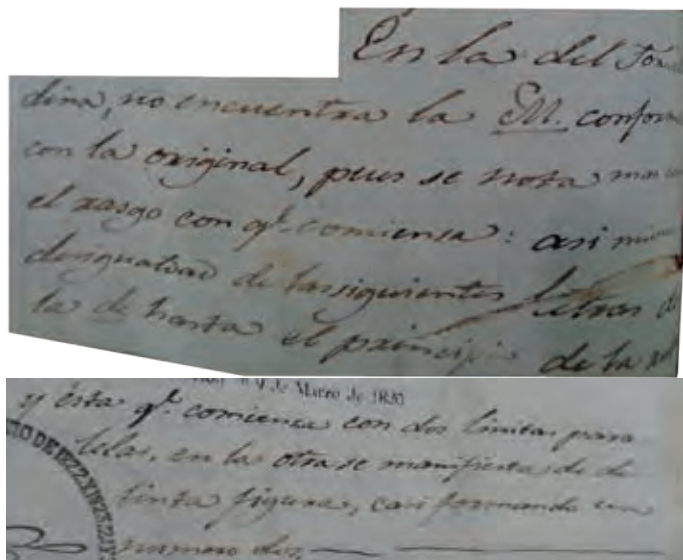 En la del
dina, no encuentra la M. conform
con la original, pues se nota mas
el rasgo con qe. comienza: asi mism
desigualdad de las siguientes letras d
la de hasta el principio de la
9 de Marzo de 1830
y ésta qe. comienza con dos linitas para
lelas, en la otra se manifiesta de di
tinta figura, casi formando un
numero dos,